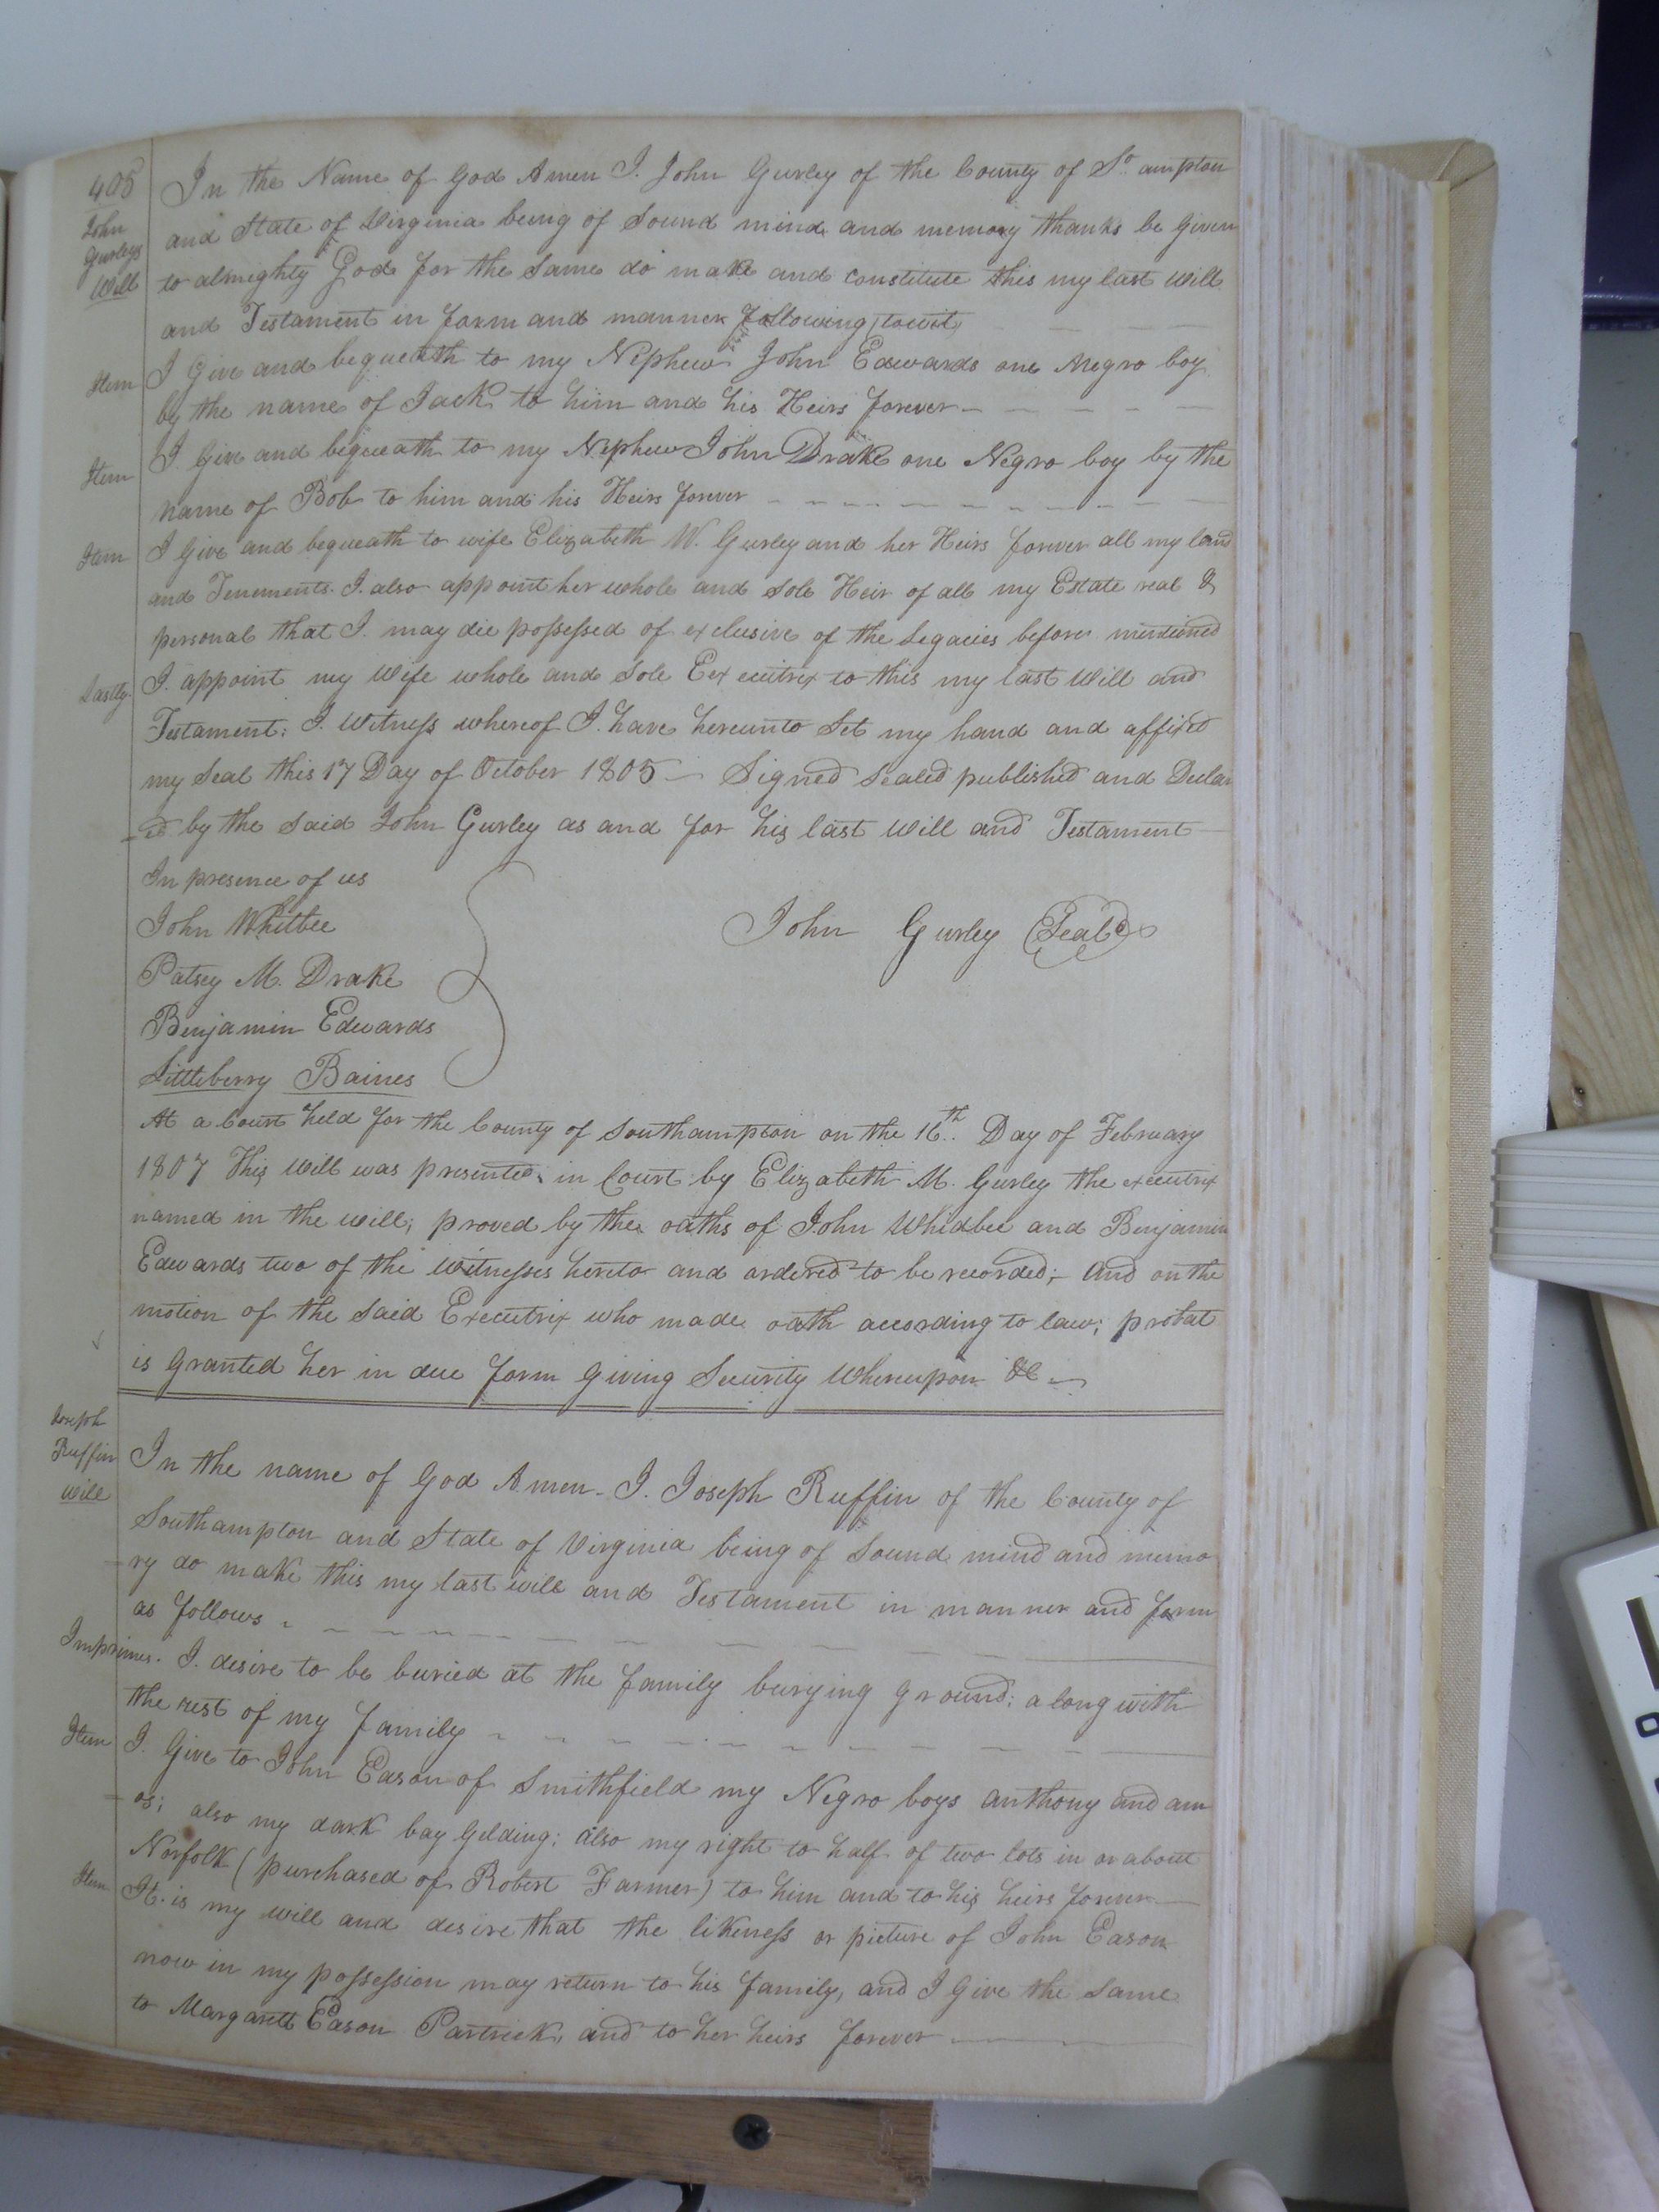 408
John
Gurleys
Will
In the Name of God Amen I. John Gurley of the County of So. ampton
and State of Virginia being of Sound mind and memory thanks be Given
to almighty God for the Same do make and constitute this my last Will
and Testament in form and manner following, towit,
Item I Give and bequeath to my Nephew John Edwards one Negro boy
by the name of Jack to him and his Heirs forever
Item I. Give and bequeath to my Nephew John Drake one Negro boy by the
name of Bob to him and his Heirs forever
Item I Give and bequeath to wife Elizabeth W. Gurley and her Heirs forever all my land
and Tenements. I. also appoint her whole and Sole Heir of all my Estate real &
personal that I. may die possessed of exclusive of the Legacies before mentioned
Lastly. I. appoint my Wife whole and Sole Executrix to this my last Will and
Testament: I. Witness whereof I. have hereunto Set my hand and affixed
my Seal this 17 Day of October 1805 — Signed Sealed published and Declar
=ed by the Said John Gurley as and for his last Will and Testament
In presence of us
John Whitbee
John Gurley (Seal)
Patsey M. Drake
Benjamin Edwards
Littleberry Baines
At a Court held for the County of Southampton on the 16th.. Day of February
1807 This Will was presented in Court by Elizabeth M. Gurley the executrix
named in the will; proved by the oaths of John Whidbee and Benjamin
Edwards two of the witnesses hereto and ordered to be recorded; And on the
motion of the Said Executrix who made oath according to law; probat
is Granted her in due form Giving Security Whereupon &c
Joseph
Ruffin
will
In the name of God Amen. I. Joseph Ruffin of the County of
Southampton and State of Virginia being of Sound mind and memo
=ry do make this my last will and Testament in manner and form
as follows
Imprimes. I. desire to be buried at the family burying ground; along with
the rest of my family
Item I. Give to John Eason of Smithfield my Negro boys Anthony and am
=os; also my dark bay Gelding; also my right to half of two lots in or about
Norfolk (purchased of Robert Farmer) to him and to his heirs forever
Item It. is my will and desire that the likeness or picture of John Eason
now in my possession may return to his family, and I Give the Same
to Margarett Eason Partrick, and to her heirs forever